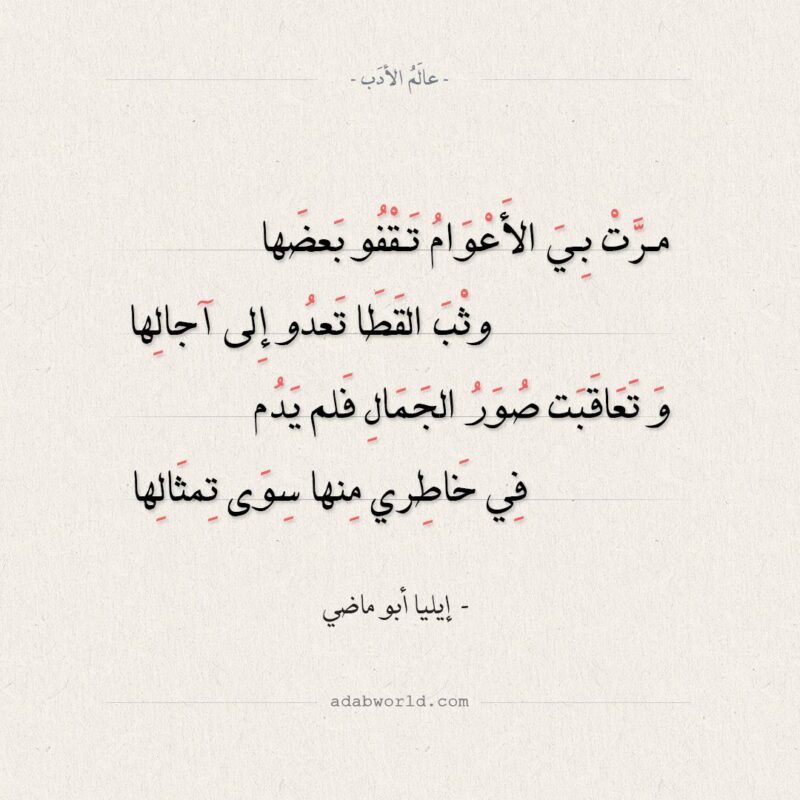 - عالَمُ الأدَب -
مـرَّتْ بِـيَ الأَعْوَامُ تَـقْفُو بَعضَها
وثْبَ القَطَا تَعدُو إِلى آجالِها
وَ تَعَاقَبَت صُوَرُ الجَمَالِ فَلم يَدُم
فِي خَاطِري مِنها سِوَى تِمثَالِها
- إيليا أبو ماضي
adabworld.com